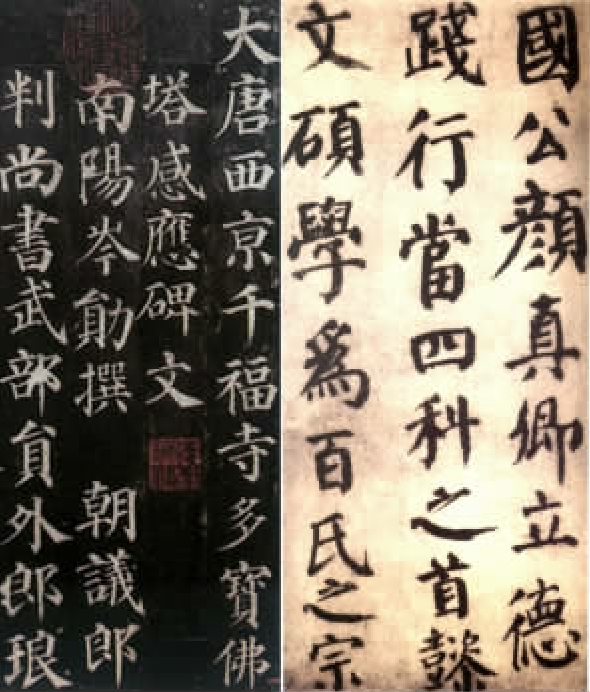 國公顔真卿立德
踐行當四科之首懿
文碩學爲百氏之宗
大唐西京千福寺多寶佛
塔感應碑文
南陽岑勛撰 朝議郎
判尚書武部員外郎琅